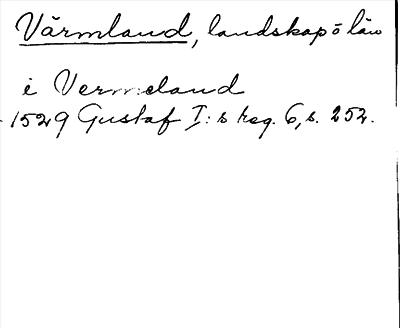 Värmland, landskap o län
i Vermeland
1529 Gustaf I:s reg. 6, s. 252.